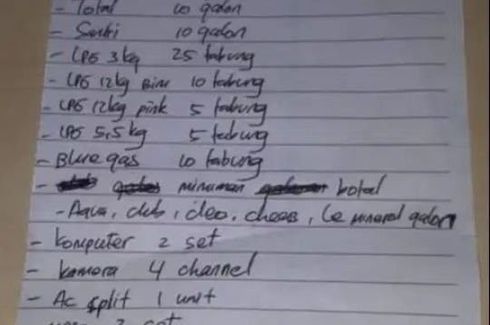 - Total 10 galon
- Sanki 10 galon
- LPG 3 kg 25 tabung
- LPG 12 kg Biru 10 tabung
- LPG 12 kg pink 5 tabung
- LPG 5,5 kg 5 tabung
- Blue gas 10 tabung
- minuman botol
- Aqua, club, cleo, cheers, Le mineral galon
- Komputer 2 set
- kamera 4 channel
- Ac split 1 unit